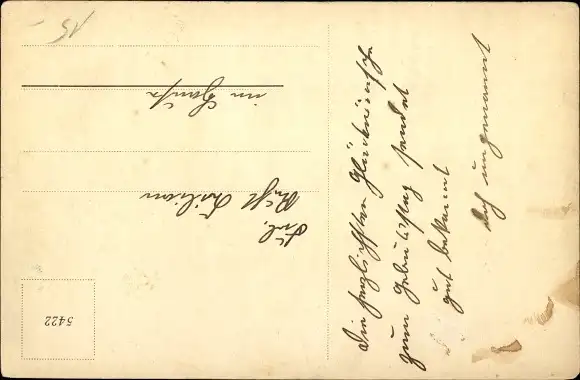 Die herzlichsten Glückwünsche
zum Geburtstag sendet
gut bekannt
doch ungenannt
Frl.
im Hause
5422
15